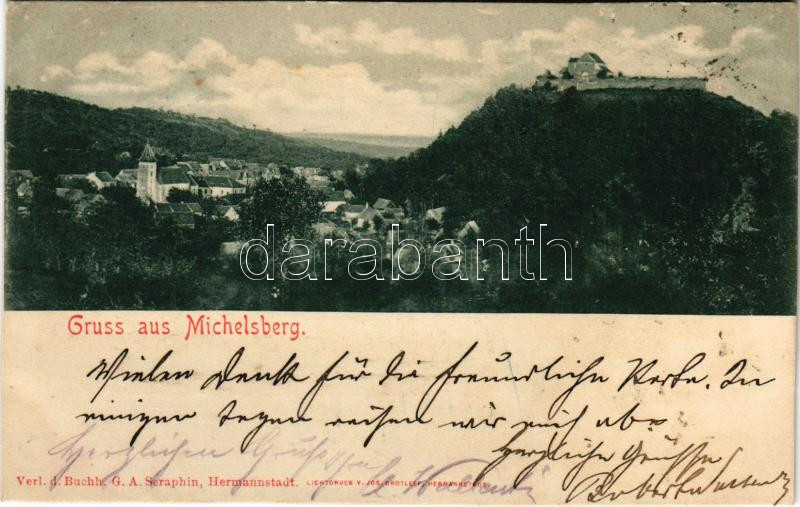 darabanth
Gruss aus Michelsberg.
Vielen Dank für die freundliche Karte. In
einigen Tagen reisen wir auch ab.
Herzliche Grüße
Herzlichen Gruß
Robert
Verl. d. Buchh. G. A. Seraphin, Hermannstadt. LICHTDRUCK V. JOS. DROTLEFF, HERMANNSTADT.